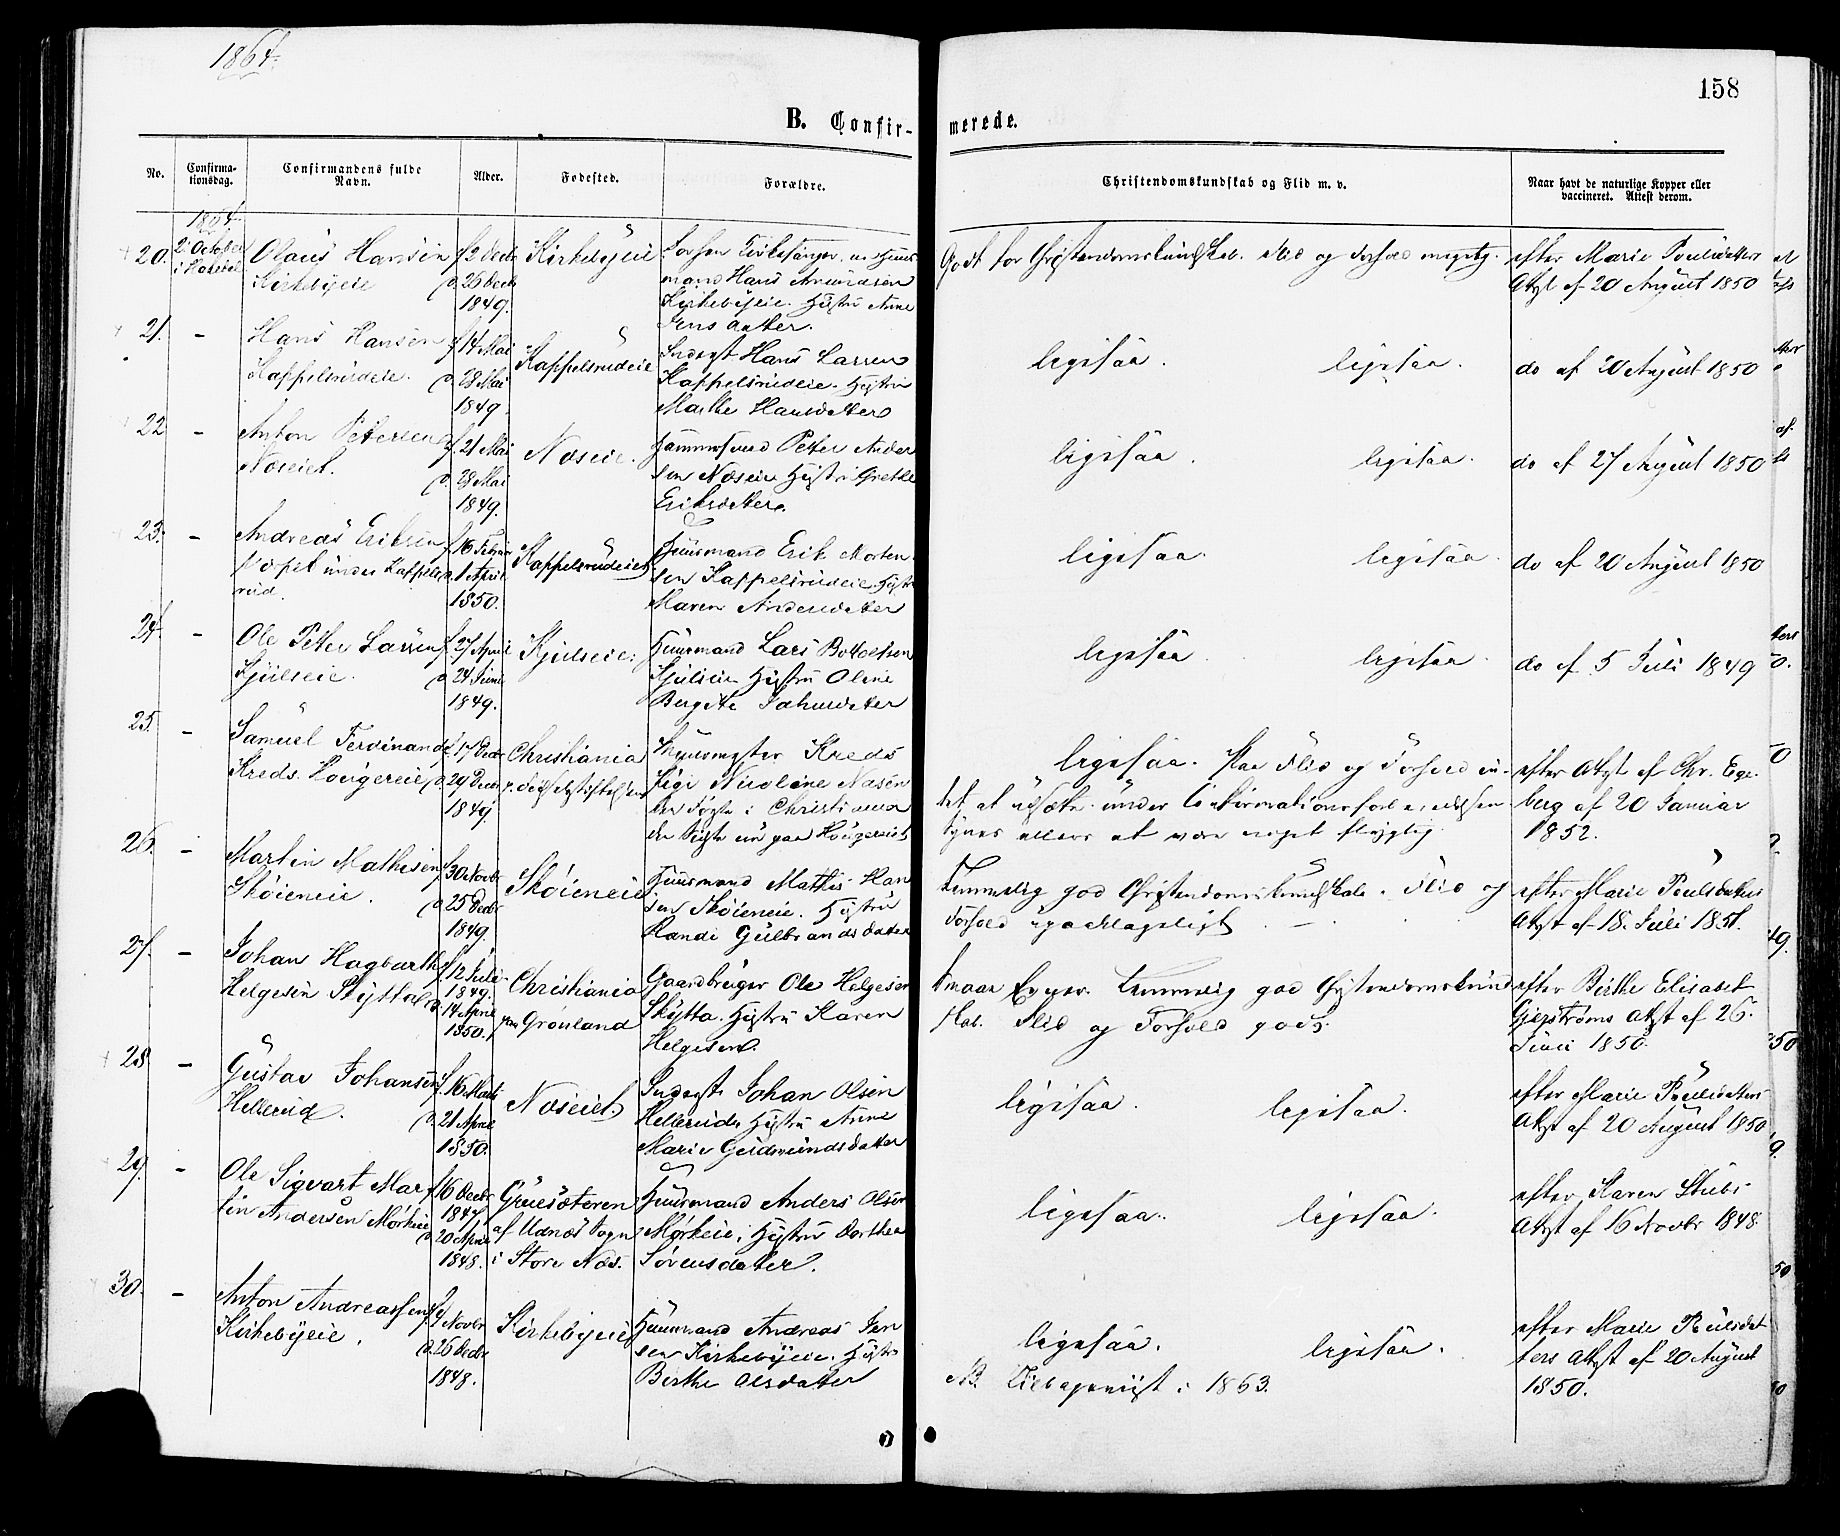 1864.
158
B. Confir-
merede.
No.
Confirma-
tionsdag.
Confirmandens fulde
Navn.
Alder.
Fødested.
Forældre.
Christendomskundskab og Flid m. v.
Naar havt de naturlige Kopper eller
vaccineret. Attest derom.
1864.
20.
2 October
Olaus Hansen
Kirkebyeie
f. 2 Decbr
d. 26 Decbr
1849.
Kirkebyeie
Forhen Kirkesanger, nu Huus-
mand Hans Amundsen
Kirkebyeie. Hustru Anne
Jensdatter.
Godt for Christendomskundskab. Flid og Forhold
efter Marie Poulsdatters
Attest af 20 August 1850
21. -
Hans Hansen
Kappelsrudeie.
f. 14 Mai
d. 28 Mai
1849.
Kappelsrudeie
Inderst Hans Larsen
Kappelsrudeie. Hustru
Marthe Hansdatter
ligesaa. ligesaa.
do af 20 August 1850
22 -
Anton Petersen
Næseiet.
f. 21 Mai
d. 28 Mai
1849.
Næseie.
Peter Ander
sen Næseie Hustru Grethe
Eriksdatter.
ligesaa. ligesaa.
do af 27 August 1850
23. -
Andreas Eriksen
under Kappels
rud.
f. 16 Februar
d. 1 April
1850.
Kappelsrudeiet
Huusmand Erik Morten
sen Kappelsrudeie Hustru
Maren Andersdatter
ligesaa. ligesaa.
do af 20 August 1850
24. -
Ole Peter Larsen
Kjulseie.
f. 27 April
d. 24 Juni
1849.
Kjulseie.
Huusmand Lars
Kjulseie Hustru Oline
Birgite
ligesaa. ligesaa.
do af 5 Juli 1849
25. -
Samuel Ferdinand
Kreds. Hougereie
f. 17 Decbr
d. 29 Decbr
1849.
Christiania
Kreds
Pige Nicoline
i Christiania
paa Hougereiet
ligesaa. Har Flid og Forhold in-
tet at udsætte under
synes ellers at være noget flygtig.
efter Attest af Chr. Ege-
berg af 20 Januar
1852.
26. -
Martin Mathisen
Skøieneie.
f. 30 Novbr
d. 25 Decbr
1849.
Skøieneie
Huusmand Mathis Han
sen Skøieneie. Hustru
Randi Gulbrandsdatter
Temmelig god Christendomskundskab. Flid og
Forhold upaaklageligt. -
efter Marie Poulsdatters
Attest af 18. Juli 1851.
27. -
Johan Hagbarth
Helgesen Skytta
f. 12 Juli
1849.
d. 14 April
1850.
Christiania
paa Grønland
Gaardbruger Ole Helgesen
Skytta. Hustru Karen
Helgesen.
Smaae Evner. Temmelig god Christendomskund
skab. Flid og Forhold godt.
efter Birthe Elisabet
Attest af 26.
Juni 1850.
28 -
Gustav Johansen
Hellerud.
f. 16 Marts
d. 21 April
1850.
Næseiet.
Inderst Johan Olsen
Hellerud. Hustru Anne
Marie Gudmundsdatter
ligesaa. ligesaa.
efter Marie Poulsdatters
Attest af 20 August 1850
29. -
Ole Sigvart Mar
tin Andersen Mørkeie
f. 16 Decbr
1847
d. 20 April
1848.
Gruesæteren
af Udnæs Sogn
i Store Næs.
Huusmand Anders Olsen
Mørkeie, Hustru Dorthea
Sørensdatter.
ligesaa. ligesaa.
efter Karen Stubs
Attest af 16 Novbr 1848.
30. -
Anton Andreassen
Kirkebyeie.
f. 9 Novbr
d. 26 Decbr
1848.
Kirkebyeie
Huusmand Andreas Jen
sen Kirkebyeie. Hustru
Birthe Olsdatter
ligesaa. ligesaa.
NB. Tilbageviist i 1863.
efter Marie Poulsdat
ters Attest af 20 August
1850.